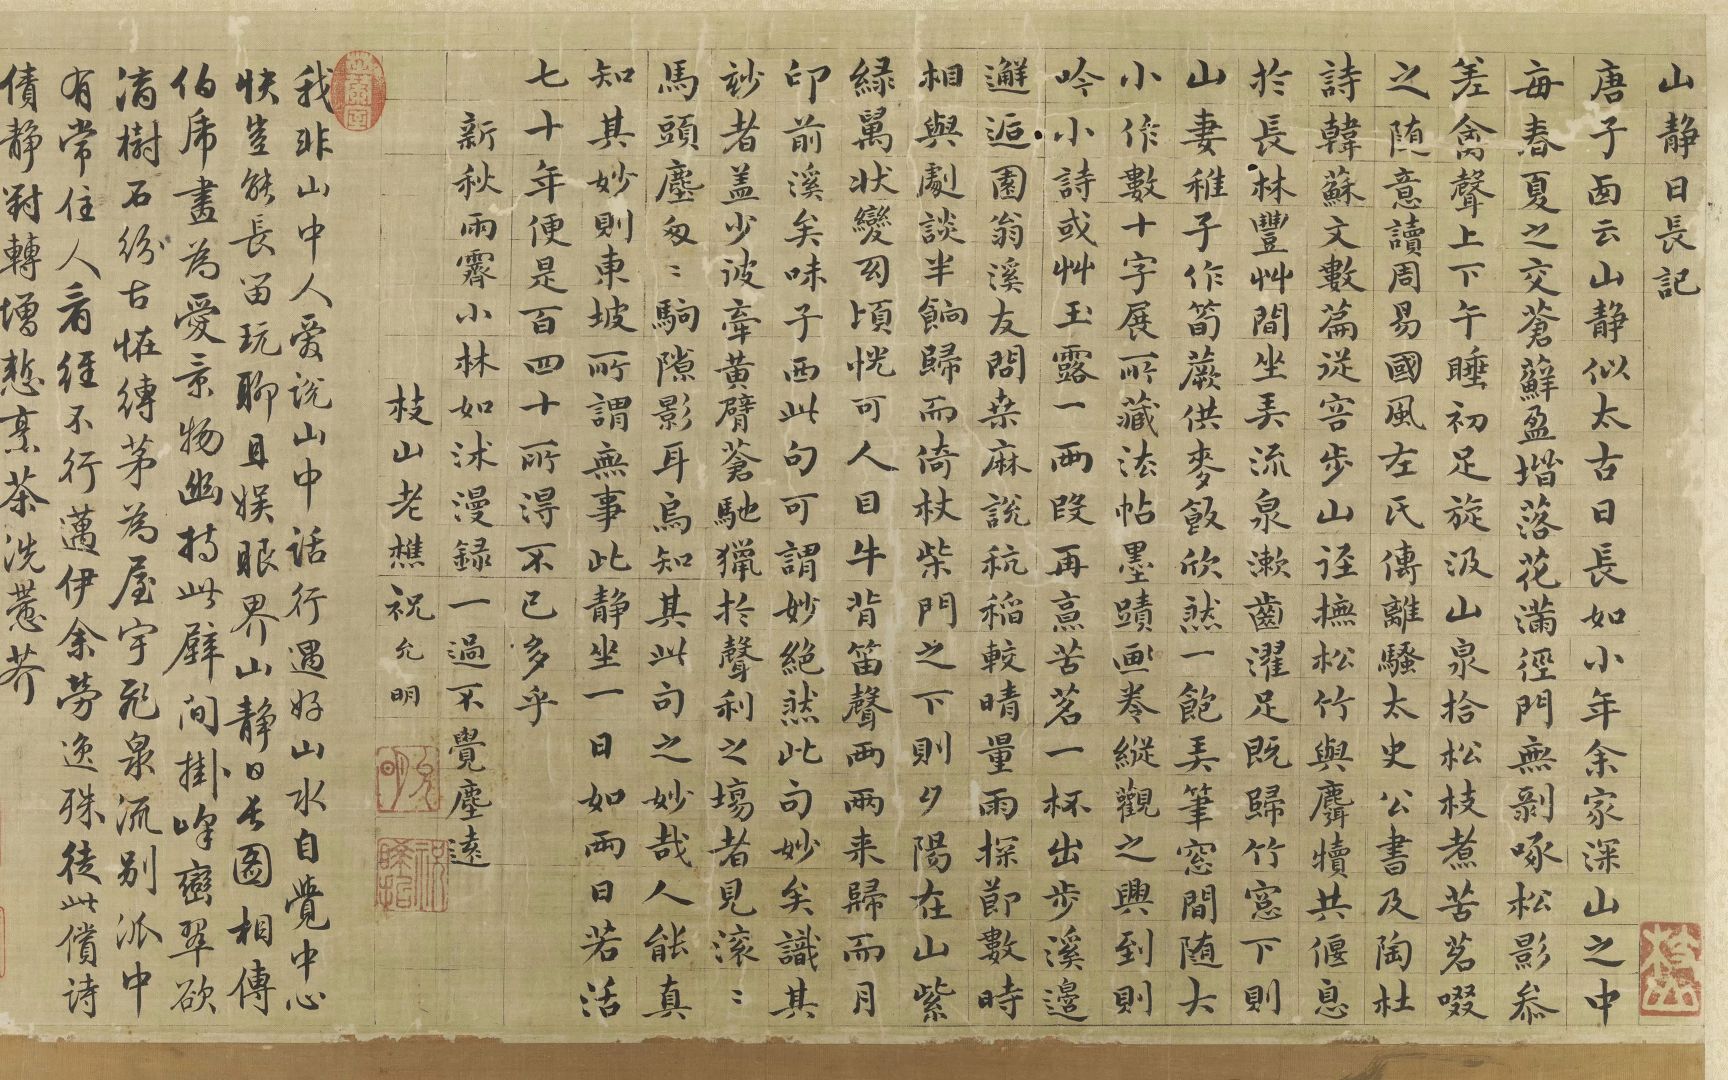 山靜日長記
唐子西云山静似太古日長如小年余家深山之中
每春夏之交蒼蘚盈堦落花滿徑門無剝啄松影叅
差禽聲上下午睡初足旋汲山泉拾松枝煮苦茗啜
之随意讀周易國風左氏傳離騷太史公書及陶杜
詩韓蘇文數篇従容步山迳撫松竹與麛犢共偃息
於長林豐艸間坐弄流泉漱齒濯足既歸竹窓下則
山妻稚子作筍蕨供麥飯欣然一飽弄筆窓間随大
小作數十字展所藏法帖墨蹟画卷縱觀之興到則
吟小詩或艸玉露一兩段再熹苦茗一杯出步溪邊
邂逅園翁溪友問桒麻說秔稲較晴量雨探節數時
相與劇談半餉歸而倚杖柴門之下則夕陽在山紫
緑萬状變幻頃恍可人目牛背笛聲兩兩来歸而月
印前溪矣味子西此句可謂妙絶然此句妙矣識其
玅者盖少彼牽黃臂蒼馳獵扵聲利之塲者見滚〻
馬頭塵匆〻駒隙影耳烏知其此句之妙哉人能真
知其妙則東坡所謂無事此静坐一日如兩日若活
七十年便是百四十所得不已多乎
新秋雨霽小林如沐漫録一過不覺塵遠
枝山老樵祝允明
我非山中人愛说山中话行遇好山水自覺中心
快豈能長留玩聊且娱眼界山静日長圖相傳
伯虎畫為愛景物幽持此壁间掛峰巒翠欲
滴樹石紛古恠縛茅為屋宇飛泉流别派中
有常住人看经不行邁伊余劳逸殊徒此償诗
债静對轉增愁烹茶洗蔕芥